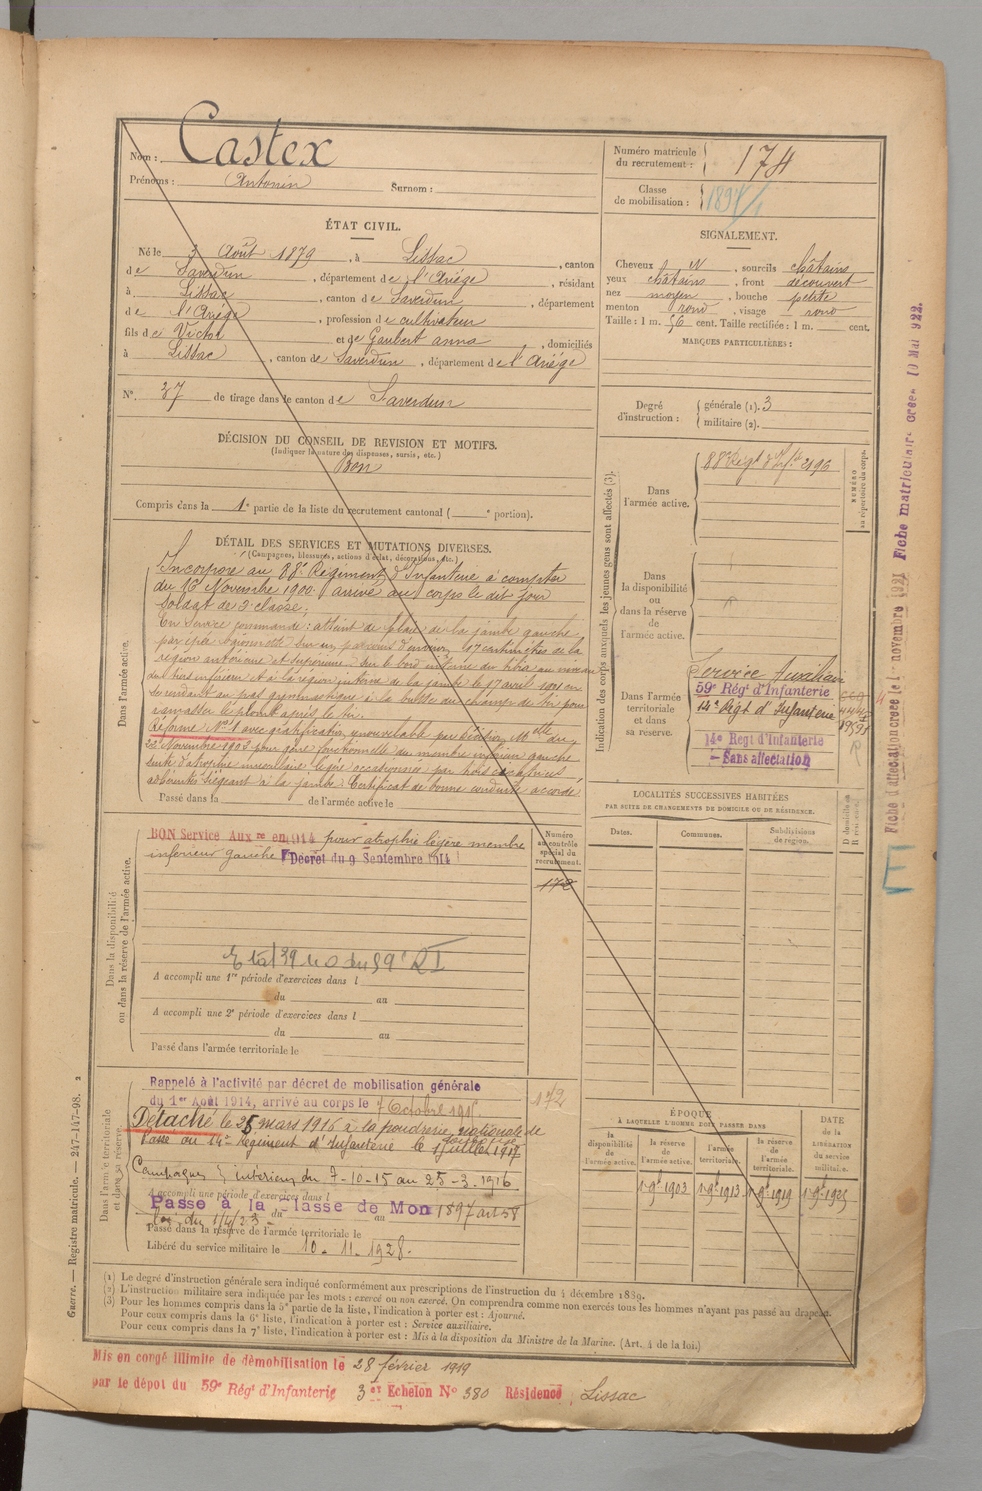 Nom : Castex
Prénoms : Antonin Surnom :
Numéro matricule du recrutement : 174
Classe de mobilisation : 1897
ÉTAT CIVIL.
Né le 3 Août 1879, à Lissac, canton
de Saverdun, département de l'Ariège, résidant
à Lissac, canton de Saverdun, département
de l'Ariège, profession de cultivateur
fils de Victor et de Gaubert anna, domiciliés
à Lissac, canton de Saverdun, département de l'Ariége
N°. 37 de tirage dans le canton de Saverdun
SIGNALEMENT.
Cheveux N, sourcils châtains
yeux châtains, front découvert
nez moyen, bouche petite
menton rond, visage rond
Taille : 1 m. 56 cent. Taille rectifiée : 1 m. cent.
MARQUES PARTICULIÈRES :
Degré d'instruction : générale (1). 3
militaire (2).
DÉCISION DU CONSEIL DE REVISION ET MOTIFS.
(Indiquer la nature des dispenses, sursis, etc.)
Bon
Compris dans la 1e partie de la liste du recrutement cantonal ( e portion).
DÉTAIL DES SERVICES ET MUTATIONS DIVERSES.
(Campagnes, blessures, actions d'éclat, décorations, etc.)
Dans l'armée active.
Incorporé au 88e Régiment d'Infanterie à compter
du 16 Novembre 1900. arrivé au corps le dit jour
Soldat de 2e classe;
En Service commandé : atteint de plaie de la jambe gauche
par épée baïonnette sur un parcours d'environ 07 centimètres de la
région antérieure et supérieure. sur le bord interne du tibia au niveau
du tiers inférieur et à la région interne de la jambe le 17 avril 1901 en
se rendant au pas gymnastique à la butte du champ de tir pour
ramasser le plomb après le tir.
Réformé N° 1 avec gratification renouvelable par décision Mlle du
22 Novembre 1902 pour gêne fonctionnelle du membre inférieur gauche
suite d'atrophie musculaire légère occasionnée par trois cicatrices
adhérentes siégeant à la jambe. Certificat de bonne conduite accordé
Passé dans la de l'armée active le
Indication des corps auxquels les jeunes gens sont affectés (3).
NUMÉRO au répertoire du corps.
Dans l'armée active.
88e Régt d'Infie 2196
Dans la disponibilité ou dans la réserve de l'armée active.
Dans l'armée territoriale et dans sa réserve.
Service Auxiliaire
59e Régt d'Infanterie
14e Régt d'Infanterie
14e Regt d'Infanterie
Sans affectation
R
Dans la disponibilité ou dans la réserve de l'armée active.
BON Service Auxre en 1914 pour atrophie légère membre
inférieur gauche Décret du 9 Septembre 1914
Numéro au contrôle spécial du recrutement.
172
A accompli une 1re période d'exercices dans l
du au
A accompli une 2e période d'exercices dans l
du au
Passé dans l'armée territoriale le
LOCALITÉS SUCCESSIVES HABITÉES
PAR SUITE DE CHANGEMENTS DE DOMICILE OU DE RÉSIDENCE.
Dates. Communes. Subdivisions de région. D domicile ou R résidence.
Dans l'armée territoriale et dans sa réserve.
Rappelé à l'activité par décret de mobilisation générale
du 1er Août 1914, arrivé au corps le 7 Octobre 1915.
172
Détaché le 25 mars 1916 à la poudrerie nationale de
Passé au 14e Régiment d'Infanterie le 1 juillet 1917
Campagnes intérieur du 7-10-15 au 25-3-1916
A accompli une période d'exercices dans l
Passé à la Classe de Mon 1897 art 58
loi du 1/4/23 du au
Passé dans la réserve de l'armée territoriale le
Libéré du service militaire le 10-11-1928.
ÉPOQUE
À LAQUELLE L'HOMME DOIT PASSER DANS
la disponibilité de l'armée active. la réserve de l'armée active. l'armée territoriale. la réserve de l'armée territoriale.
DATE de la LIBÉRATION du service militaire.
1-9e 1903 1-9e 1913 1-9e 1919 1-9e 1925
(1) Le degré d'instruction générale sera indiqué conformément aux prescriptions de l'instruction du 4 décembre 1889.
(2) L'instruction militaire sera indiquée par les mots : exercé ou non exercé. On comprendra comme non exercés tous les hommes n'ayant pas passé au drapeau.
(3) Pour les hommes compris dans la 5e partie de la liste, l'indication à porter est : Ajourné.
Pour ceux compris dans la 6e liste, l'indication à porter est : Service auxiliaire.
Pour ceux compris dans la 7e liste, l'indication à porter est : Mis à la disposition du Ministre de la Marine. (Art. 4 de la loi.)
Mis en congé illimité de démobilisation le 28 février 1919
par le dépot du 59e Régt d'Infanterie 3er Echelon N° 380 Résidence Lissac
Guerre. — Registre matricule. — 247-147-98. 2
Fiche d'affectation créée le 1 novembre 1921 Fiche matriculaire créée 10 Mai 922.
E